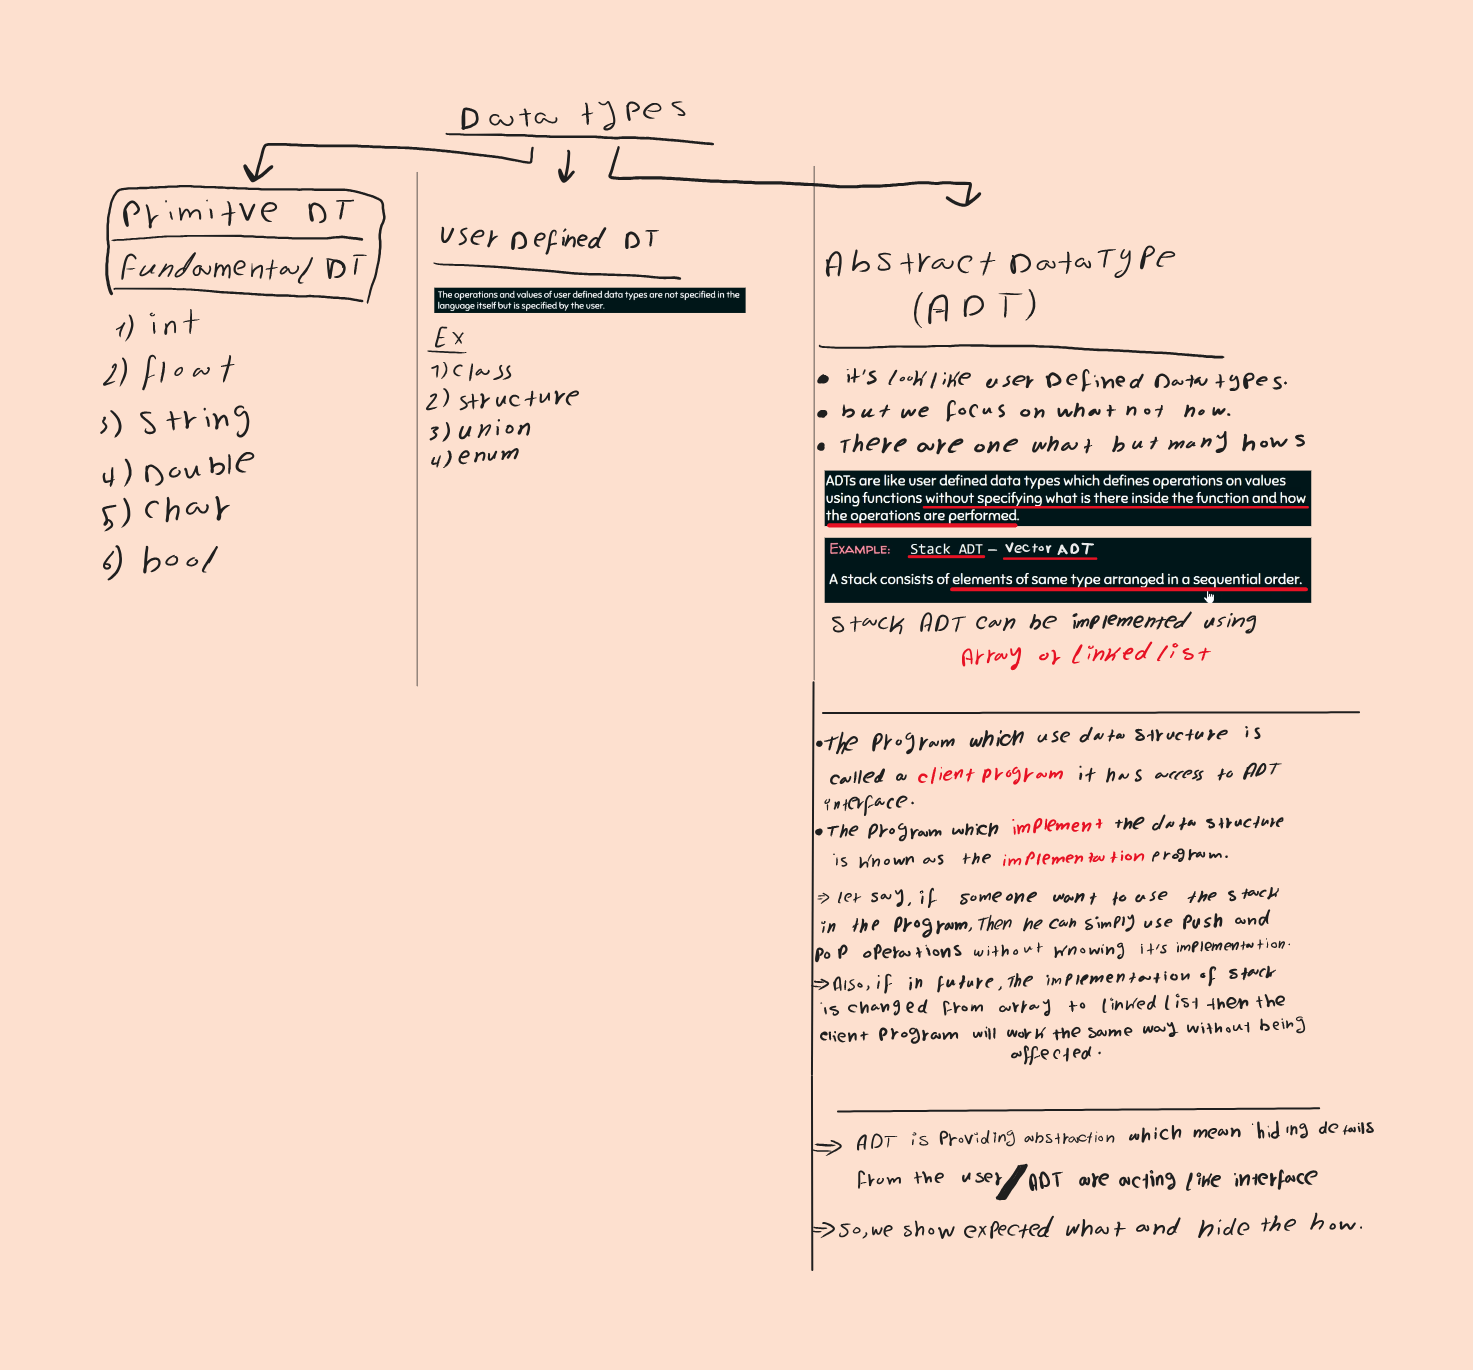 Data types
Primitve DT
Fundamental DT
1) int
2) float
3) String
4) Double
5) char
6) bool
User Defined DT
The operations and values of user defined data types are not specified in the
language itself but is specified by the user.
Ex
1) class
2) structure
3) union
4) enum
Abstract Data Type
(ADT)
• it's look like user Defined Data types.
• but we focus on what not how.
• There are one what but many hows
ADTs are like user defined data types which defines operations on values
using functions without specifying what is there inside the function and how
the operations are performed.
EXAMPLE: Stack ADT – Vector ADT
A stack consists of elements of same type arranged in a sequential order.
Stack ADT can be implemented using
Array or linked list
• The Program which use data structure is
called a client program it has access to ADT
interface.
• The program which implement the data structure
is known as the implementation program.
⇒ let say, if someone want to use the stack
in the Program, Then he can simply use Push and
PoP operations without knowing it's implementation.
⇒ Also, if in future, The implementation of stack
is changed from array to linked list then the
client Program will work the same way without being
affected.
⇒ ADT is Providing abstraction which mean hiding details
from the user / ADT are acting like interface
⇒ So, we show expected what and hide the how.